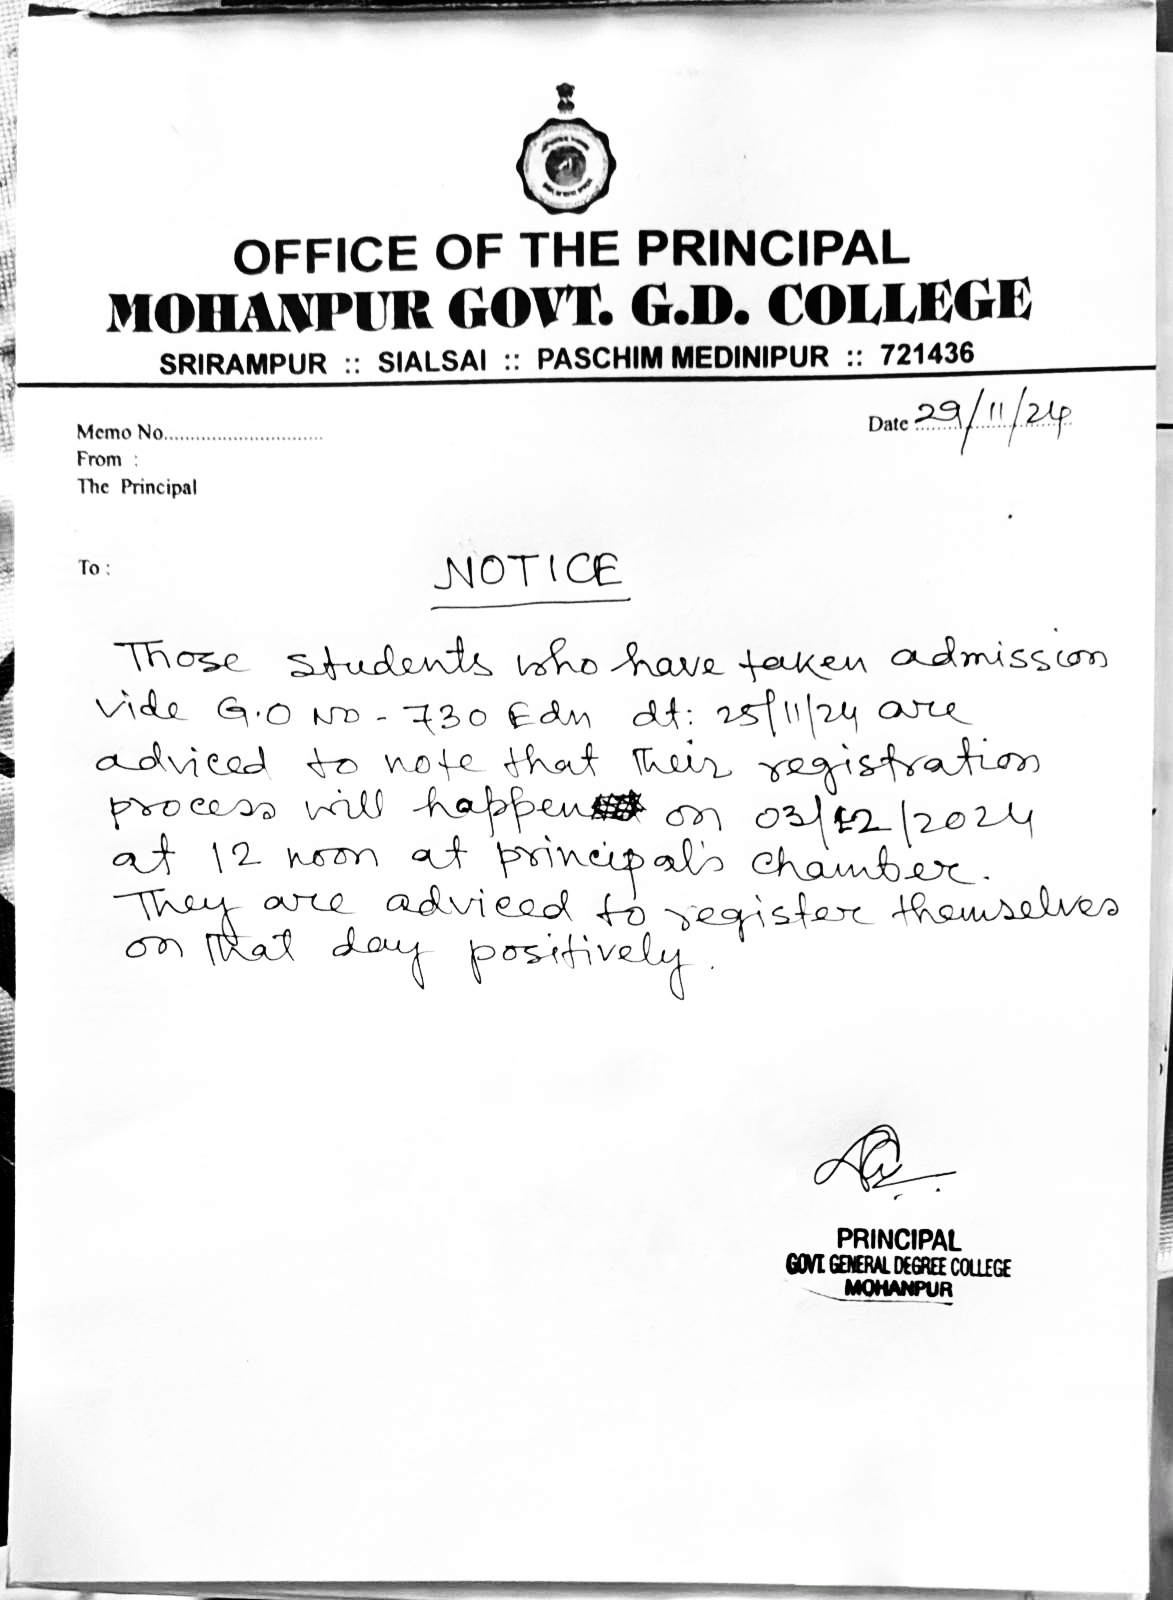 OFFICE OF THE PRINCIPAL
MOHANPUR GOVT. G.D. COLLEGE
SRIRAMPUR :: SIALSAI :: PASCHIM MEDINIPUR :: 721436
Date 29/11/24
Memo No..............................
From :
The Principal
To :
NOTICE
Those students who have taken admission
vide G.O No - 730 Edn dt: 25/11/24 are
adviced to note that their registration
process will happen on 03/12/2024
at 12 noon at principal's chamber.
They are adviced to register themselves
on that day positively.
PRINCIPAL
GOVT. GENERAL DEGREE COLLEGE
MOHANPUR